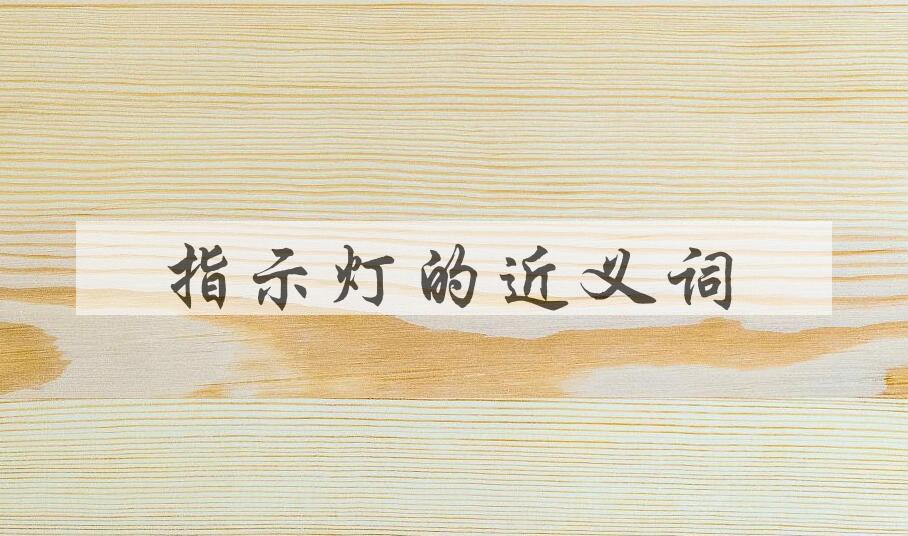 指示灯的近义词